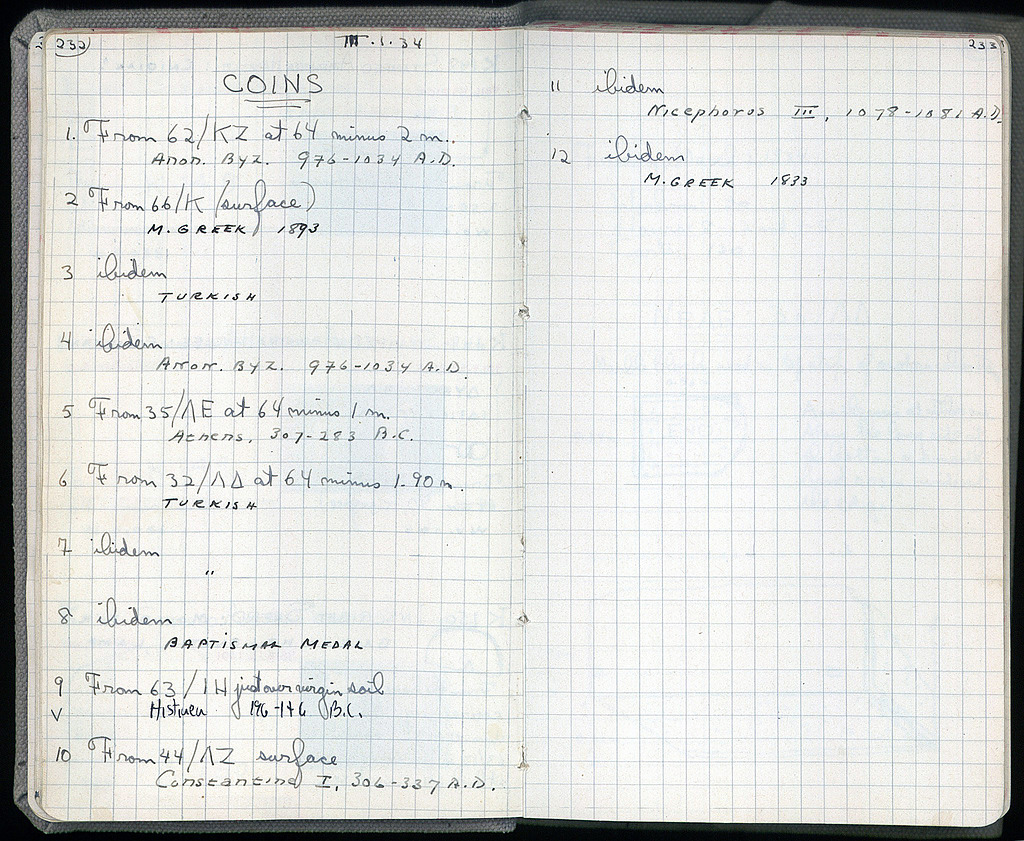 232
III.1.34
COINS
1. From 62/ΚΖ at 64 minus 2 m..
Anon. Byz. 976-1034 A.D.
2 From 66/Κ (surface)
M. GREEK 1893
3 ibidem
TURKISH
4 ibidem
Anon. Byz. 976-1034 A.D.
5 From 35/ΛΕ at 64 minus 1 m.
Athens, 307-283 B.C.
6 From 32/ΛΔ at 64 minus 1.90 m.
TURKISH
7 ibidem
"
8 ibidem
BAPTISMAL MEDAL
9 From 63/ΙΗ just over virgin soil
V 196-146 B.C.
10 From 44/ΛΖ surface
Constantine I, 306-337 A.D.
233
11 ibidem
Nicephorus III, 1078-1081 A.D.
12 ibidem
M. GREEK 1833